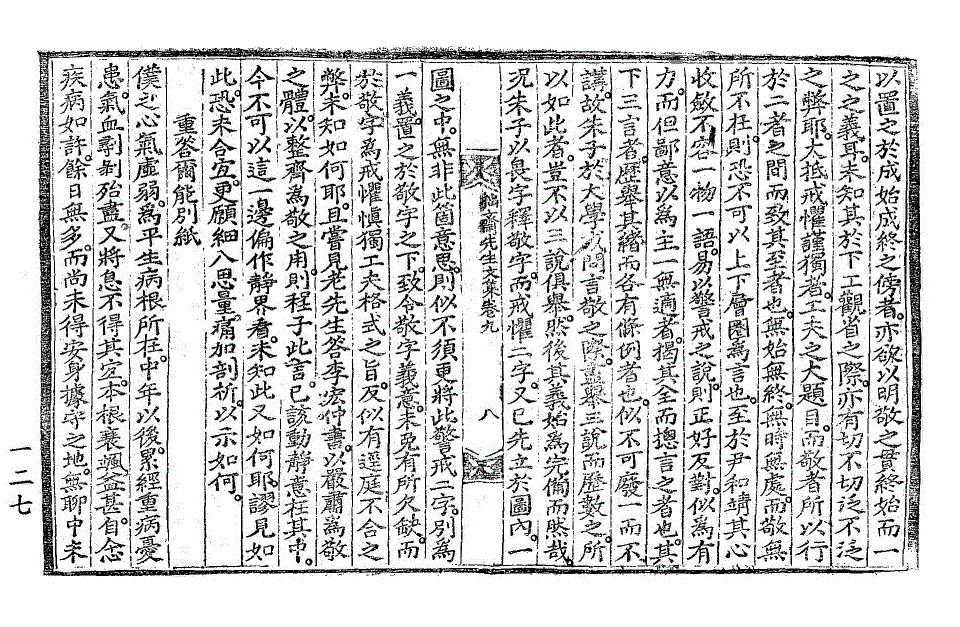 以置之於成始成終之傍者亦欲以明敬之貫終始而一
之之義耳未知其於下工觀省之際亦有切不切泛不泛
之弊耶大抵戒懼謹獨者工夫之大題目而敬者所以行
於二者之間而致其至者也無始無終無時無處而敬無
所不在則恐不可以上下層圈為言也至於尹和靖其心
收斂不容一物一語易以警戒之說則正好反對似為有
力而但鄙意以為主一無適者揭其全而摠言之者也其
下三言者歷舉其緖而各有條例者也似不可廢一而不
講故朱子於大學或問言敬之際並舉三說而歷數之所
以如此者豈不以三說俱舉然後其義始為完備而然哉
況朱子以畏字釋敬字而戒懼二字又已先立於圖內一
先生文集卷九
八
圖之中無非此箇意思則似不須更將此警戒二字別為
一義置之於敬字之下致令敬字義意未免有所欠缺而
於敬字為戒懼愼獨工夫格式之旨反似有逕庭不合之
弊未知如何耶且嘗見老先生答李宏仲書以嚴肅為敬
之體以整齊為敬之用則程子此言已該動靜意在其中
今不可以這一邊偏作靜界看未知此又如何耶謬見如
此恐未合宜更願細入思量痛加剖析以示如何
重答爾能別紙
僕之心氣虛弱為平生病根所在中年以後累經重病憂
患氣血剝剝殆盡又將息不得其宜本根衰颯益甚自念
疾病如許餘日無多而尚未得安身據守之地無聊中未
一二七